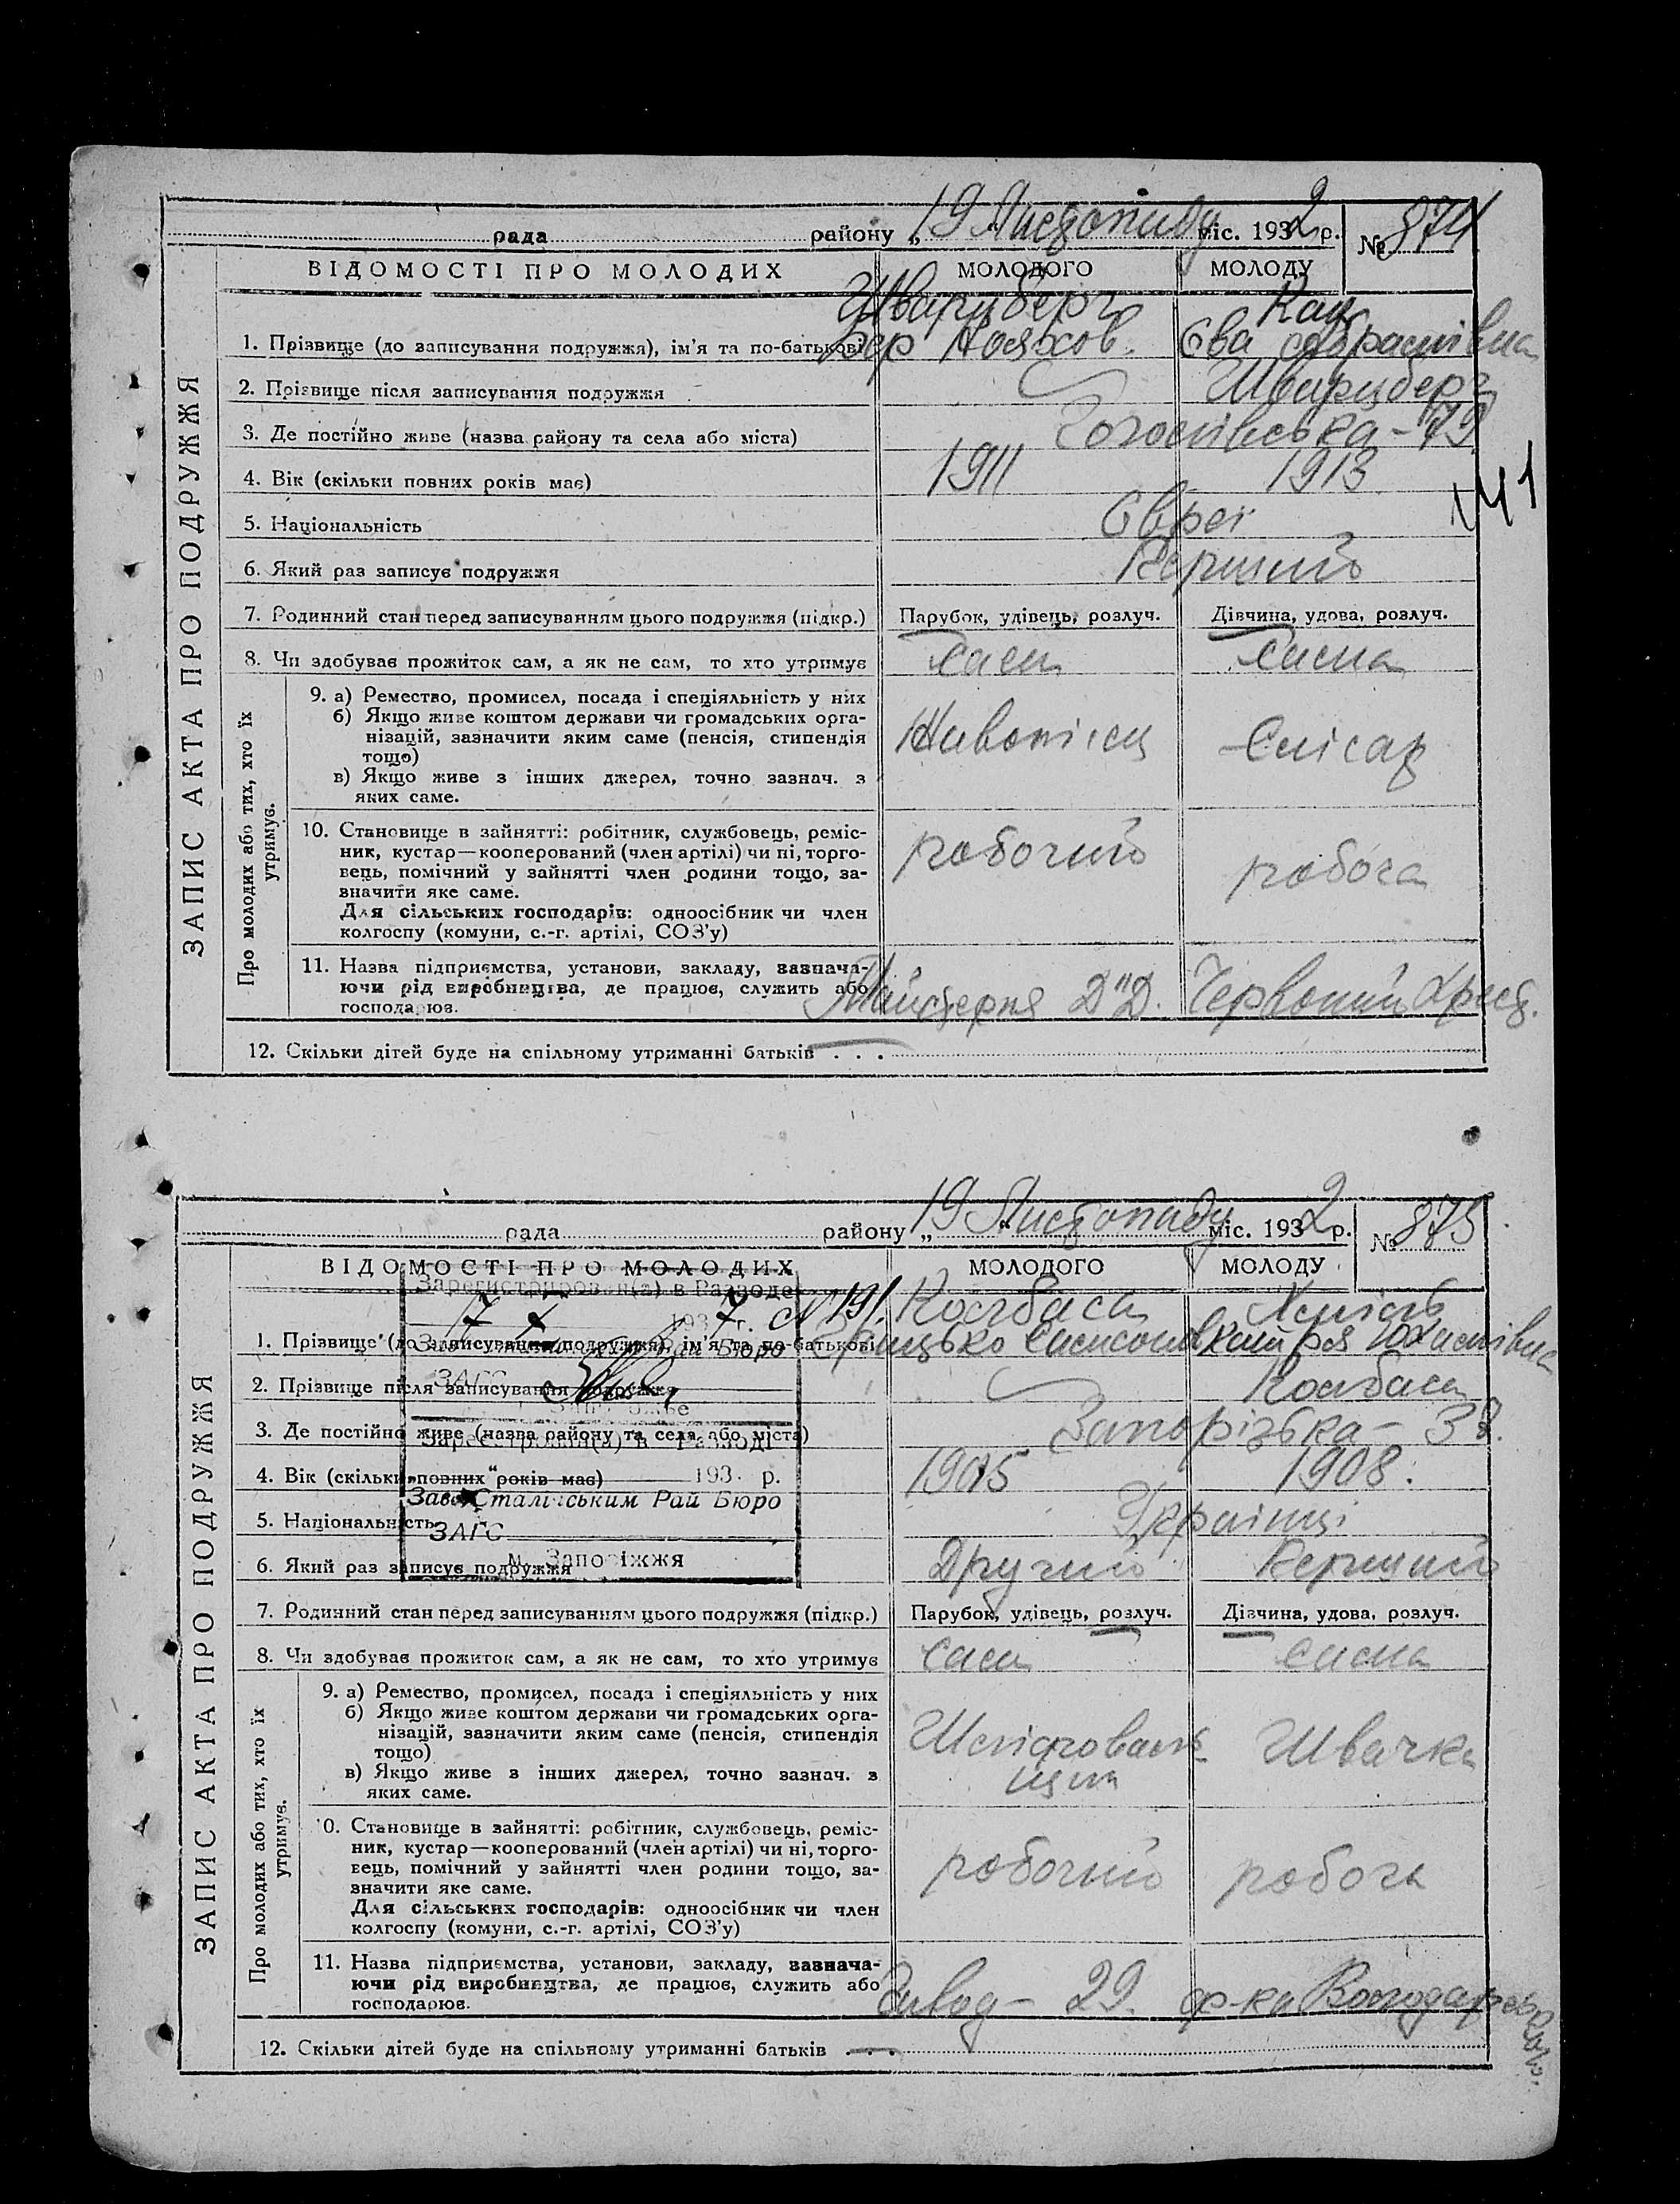 рада району „ 19 Листопаду міс. 1932 р. № 874
ВІДОМОСТІ ПРО МОЛОДИХ МОЛОДОГО МОЛОДУ
Шварцберг Кац
1. Прізвище (до записування подружжя), ім'я та по-батькові Бер Нояхов. Єва
2. Прізвище після записування подружжя Шварцберг
3. Де постійно живе (назва району та села або міста) 79
4. Вік (скільки повних років має) 1911 1913
5. Національність Євреї
6. Який раз записує подружжя Перший
7. Родинний стан перед записуванням цього подружжя (підкр.) Парубок, удівець, розлуч. Дівчина, удова, розлуч.
8. Чи здобував прожиток сам, а як не сам, то хто утримує Сам Сама
ЗАПИС АКТА ПРО ПОДРУЖЖЯ
Про молодих або тих, хто їх утримує.
9. а) Ремество, промисел, посада і спеціяльність у них
б) Якщо живе коштом держави чи громадських орга-
нізацій, зазначити яким саме (пенсія, стипендія
тощо)
в) Якщо живе з інших джерел, точно зазнач. з
яких саме.
Живопісец Слісар
10. Становище в зайнятті: робітник, службовець, реміс-
ник, кустар—кооперований (член артілі) чи ні, торго-
вець, помічний у зайнятті член родини тощо, за-
значити яке саме.
Для сільських господарів: одноосібник чи член
колгоспу (комуни, с.-г. артілі, СОЗ'у)
робочий робоча
11. Назва підприємства, установи, закладу, зазнача-
ючи рід виробництва, де працює, служить або
господарює.
Майстерня Д"Д. Червоний Хрест.
12. Скільки дітей буде на спільному утриманні батьків . . .
рада району „ 19 Листопаду міс. 1932 р. № 875
ВІДОМОСТІ ПРО МОЛОДИХ МОЛОДОГО МОЛОДУ
Зарегистрирован(а) в Разводе
7 X 1937 г. № 191.
Рай Бюро
ЗАГС
Зареєстрован(а) в Разводі
193 р.
Зав. Сталінським Рай Бюро
ЗАГС
м. Запоріжжя
Ковбаса Хміль
1. Прізвище (до записування подружжя), ім'я та по-батькові Грицько
2. Прізвище після записування подружжя Ковбаса
3. Де постійно живе (назва району та села або міста) Запорізька - 38.
4. Вік (скільки повних років має) 1905 1908.
5. Національність Українці
6. Який раз записує подружжя Другий Перший
7. Родинний стан перед записуванням цього подружжя (підкр.) Парубок, удівець, розлуч. Дівчина, удова, розлуч.
8. Чи здобував прожиток сам, а як не сам, то хто утримує Сам Сама
ЗАПИС АКТА ПРО ПОДРУЖЖЯ
Про молодих або тих, хто їх утримує.
9. а) Ремество, промисел, посада і спеціяльність у них
б) Якщо живе коштом держави чи громадських орга-
нізацій, зазначити яким саме (пенсія, стипендія
тощо)
в) Якщо живе з інших джерел, точно зазнач. з
яких саме.
Шліфоваль- Швачка
щик
10. Становище в зайнятті: робітник, службовець, реміс-
ник, кустар—кооперований (член артілі) чи ні, торго-
вець, помічний у зайнятті член родини тощо, за-
значити яке саме.
Для сільських господарів: одноосібник чи член
колгоспу (комуни, с.-г. артілі, СОЗ'у)
робочий робоча
11. Назва підприємства, установи, закладу, зазнача-
ючи рід виробництва, де працює, служить або
господарює.
Завод - 29. ф-ка Володарського
12. Скільки дітей буде на спільному утриманні батьків . . .